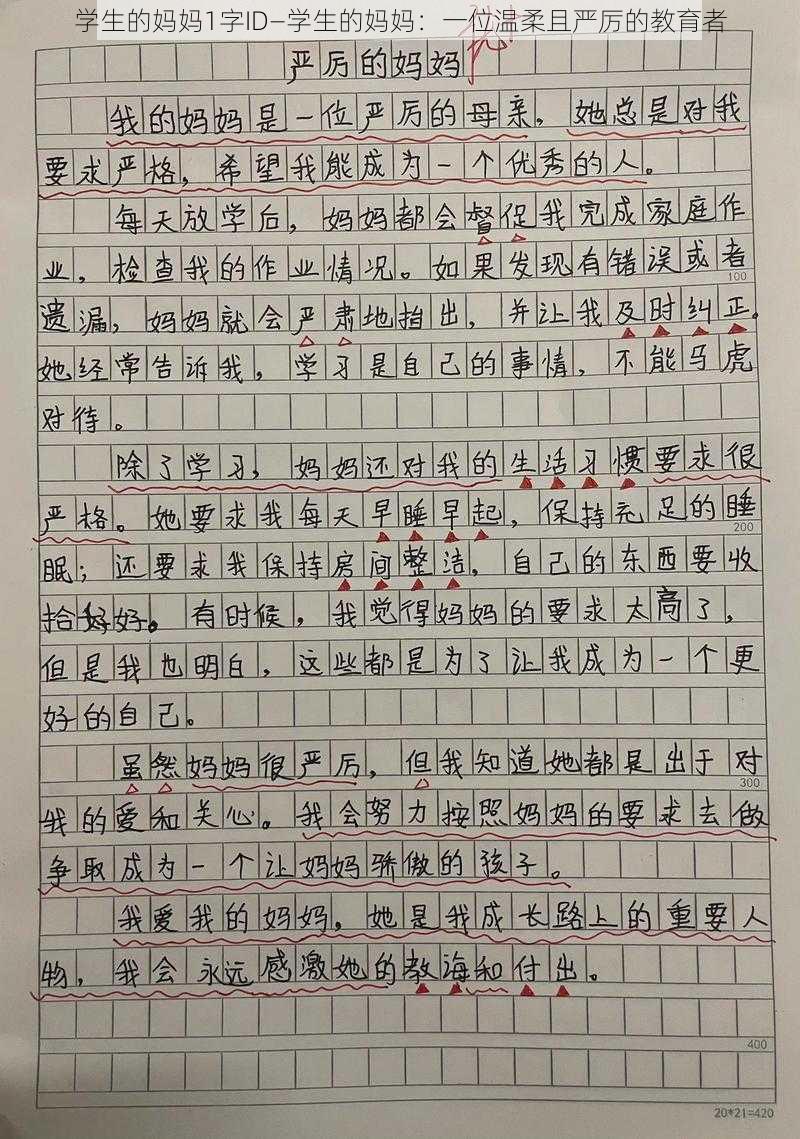 学生的妈妈1字ID–学生的妈妈：一位温柔且严厉的教育者
严厉的妈妈
我的妈妈是一位严厉的母亲，她总是对我
要求严格，希望我能成为一个优秀的人。
每天放学后，妈妈都会督促我完成家庭作
业，检查我的作业情况。如果发现有错误或者
100
遗漏，妈妈就会严肃地指出，并让我及时纠正。
她经常告诉我，学习是自己的事情，不能马虎
对待。
除了学习，妈妈还对我的生活习惯要求很
严格。她要求我每天早睡早起，保持充足的睡
200
眠；还要求我保持房间整洁，自己的东西要收
拾好。有时候，我觉得妈妈的要求太高了，
但是我也明白，这些都是为了让我成为一个更
好的自己。
虽然妈妈很严厉，但我知道她都是出于对
300
我的爱和关心。我会努力按照妈妈的要求去做
争取成为一个让妈妈骄傲的孩子。
我爱我的妈妈，她是我成长路上的重要人
物，我会永远感激她的教海和付出。
400
20*21=420